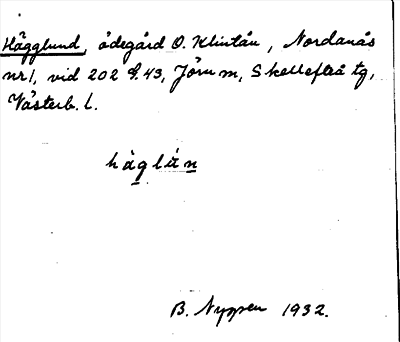 Hägglund, ödegård O. Klintån, Nordanås
nr 1, vid 202 f. 43, Jörn m, Skellefteå tg,
Västerb. l.
hàglán
B. Nyman 1932.